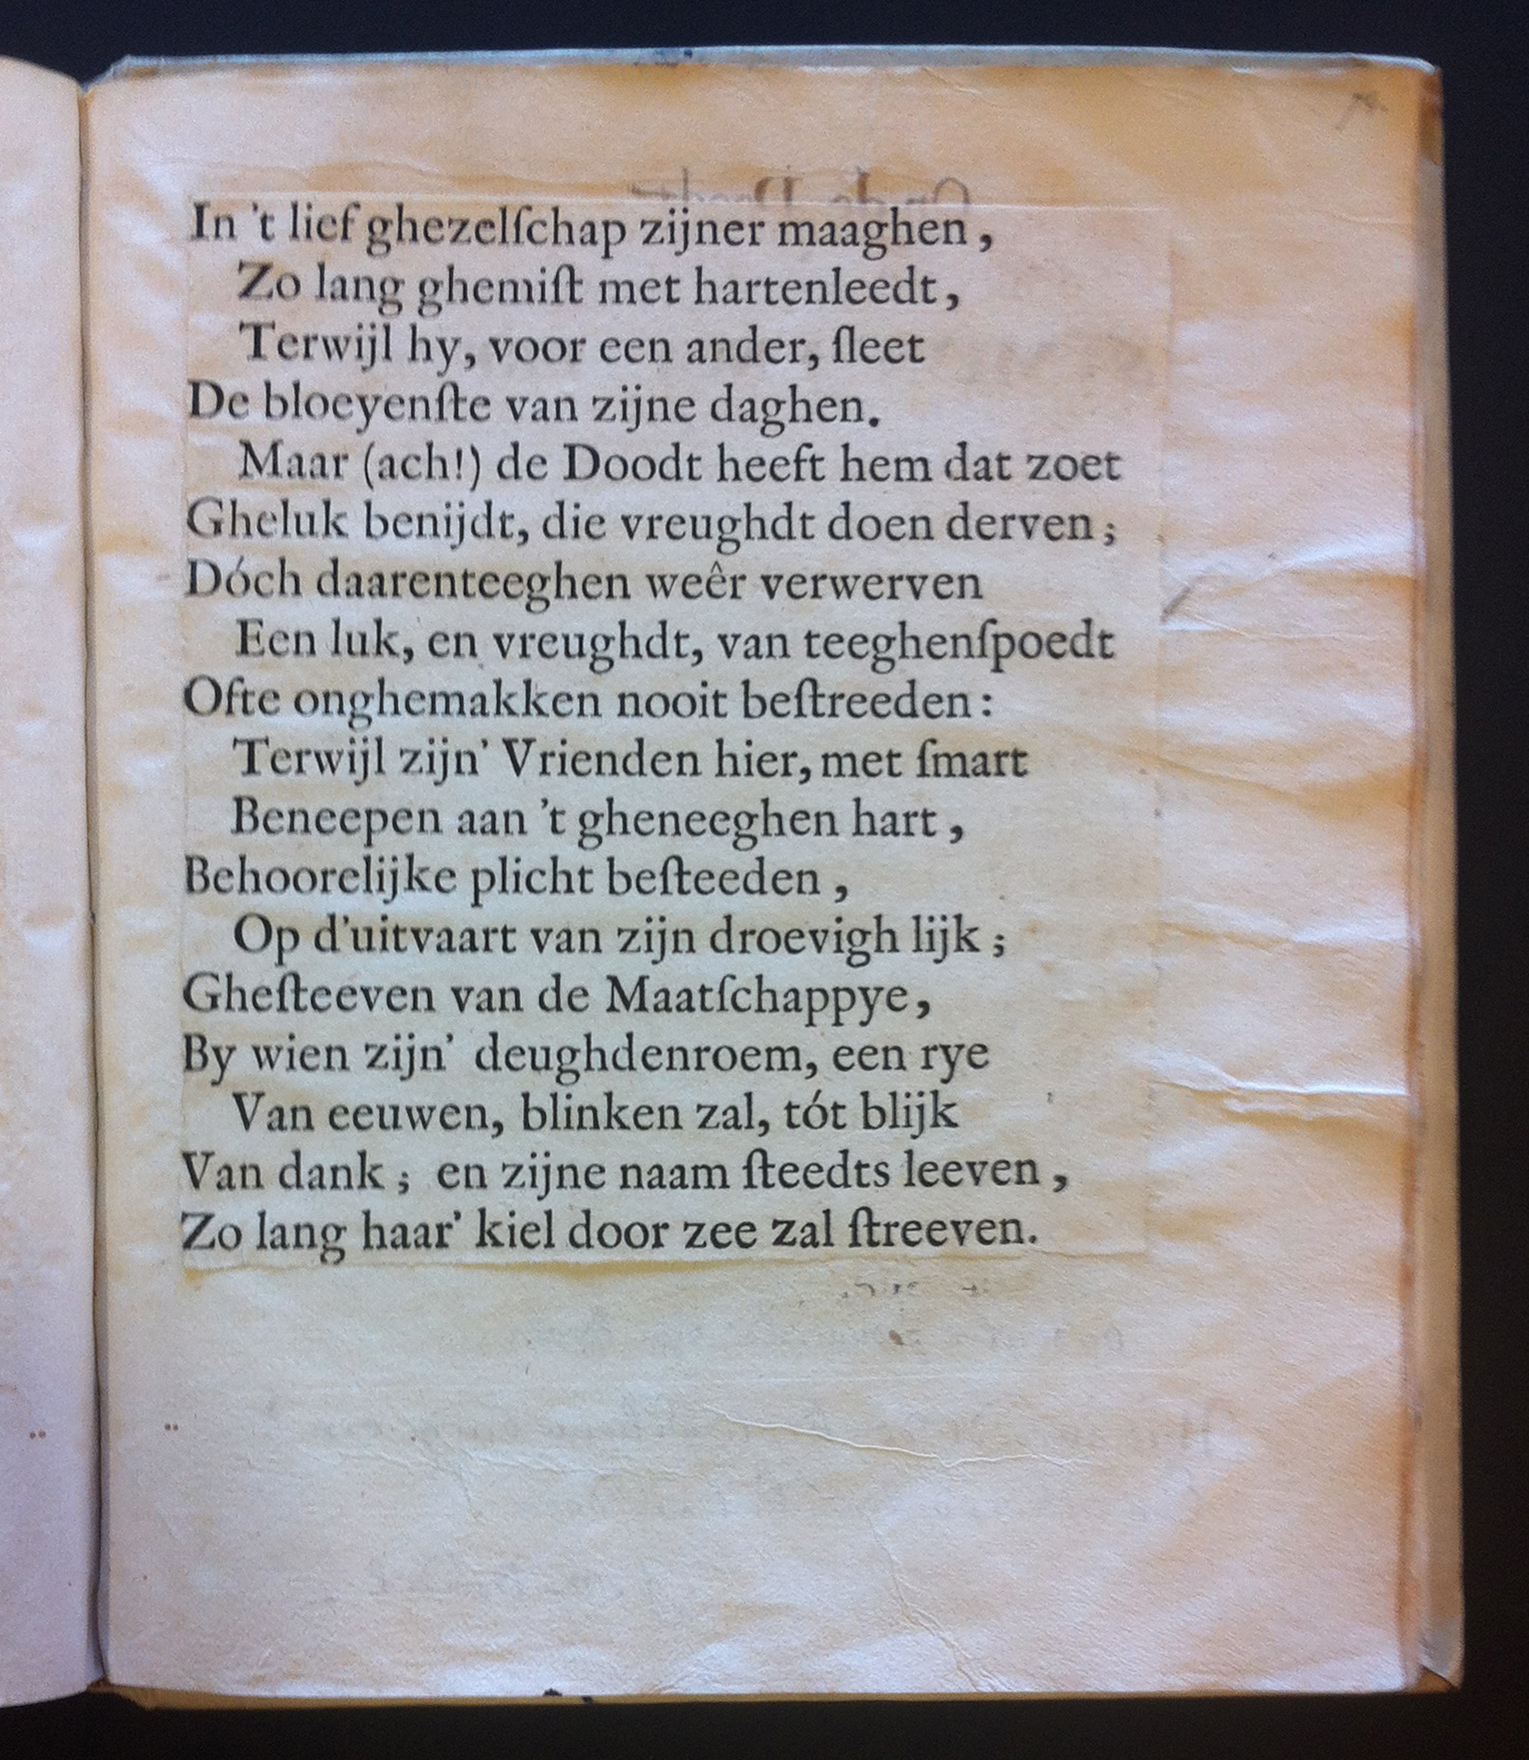 In 't lief ghezelſchap zijner maaghen,
Zo lang ghemiſt met hartenleedt,
Terwijl hy, voor een ander, ſleet
De bloeyenſte van zijne daghen.
Maar (ach!) de Doodt heeft hem dat zoet
Gheluk benijdt, die vreughdt doen derven;
Dóch daarenteeghen weêr verwerven
Een luk, en vreughdt, van teeghenſpoedt
Ofte onghemakken nooit beſtreeden:
Terwijl zijn' Vrienden hier, met ſmart
Beneepen aan 't gheneeghen hart,
Behoorelijke plicht beſteeden,
Op d'uitvaart van zijn droevigh lijk;
Gheſteeven van de Maatſchappye,
By wien zijn' deughdenroem, een rye
Van eeuwen, blinken zal, tót blijk
Van dank; en zijne naam ſteedts leeven,
Zo lang haar' kiel door zee zal ſtreeven.